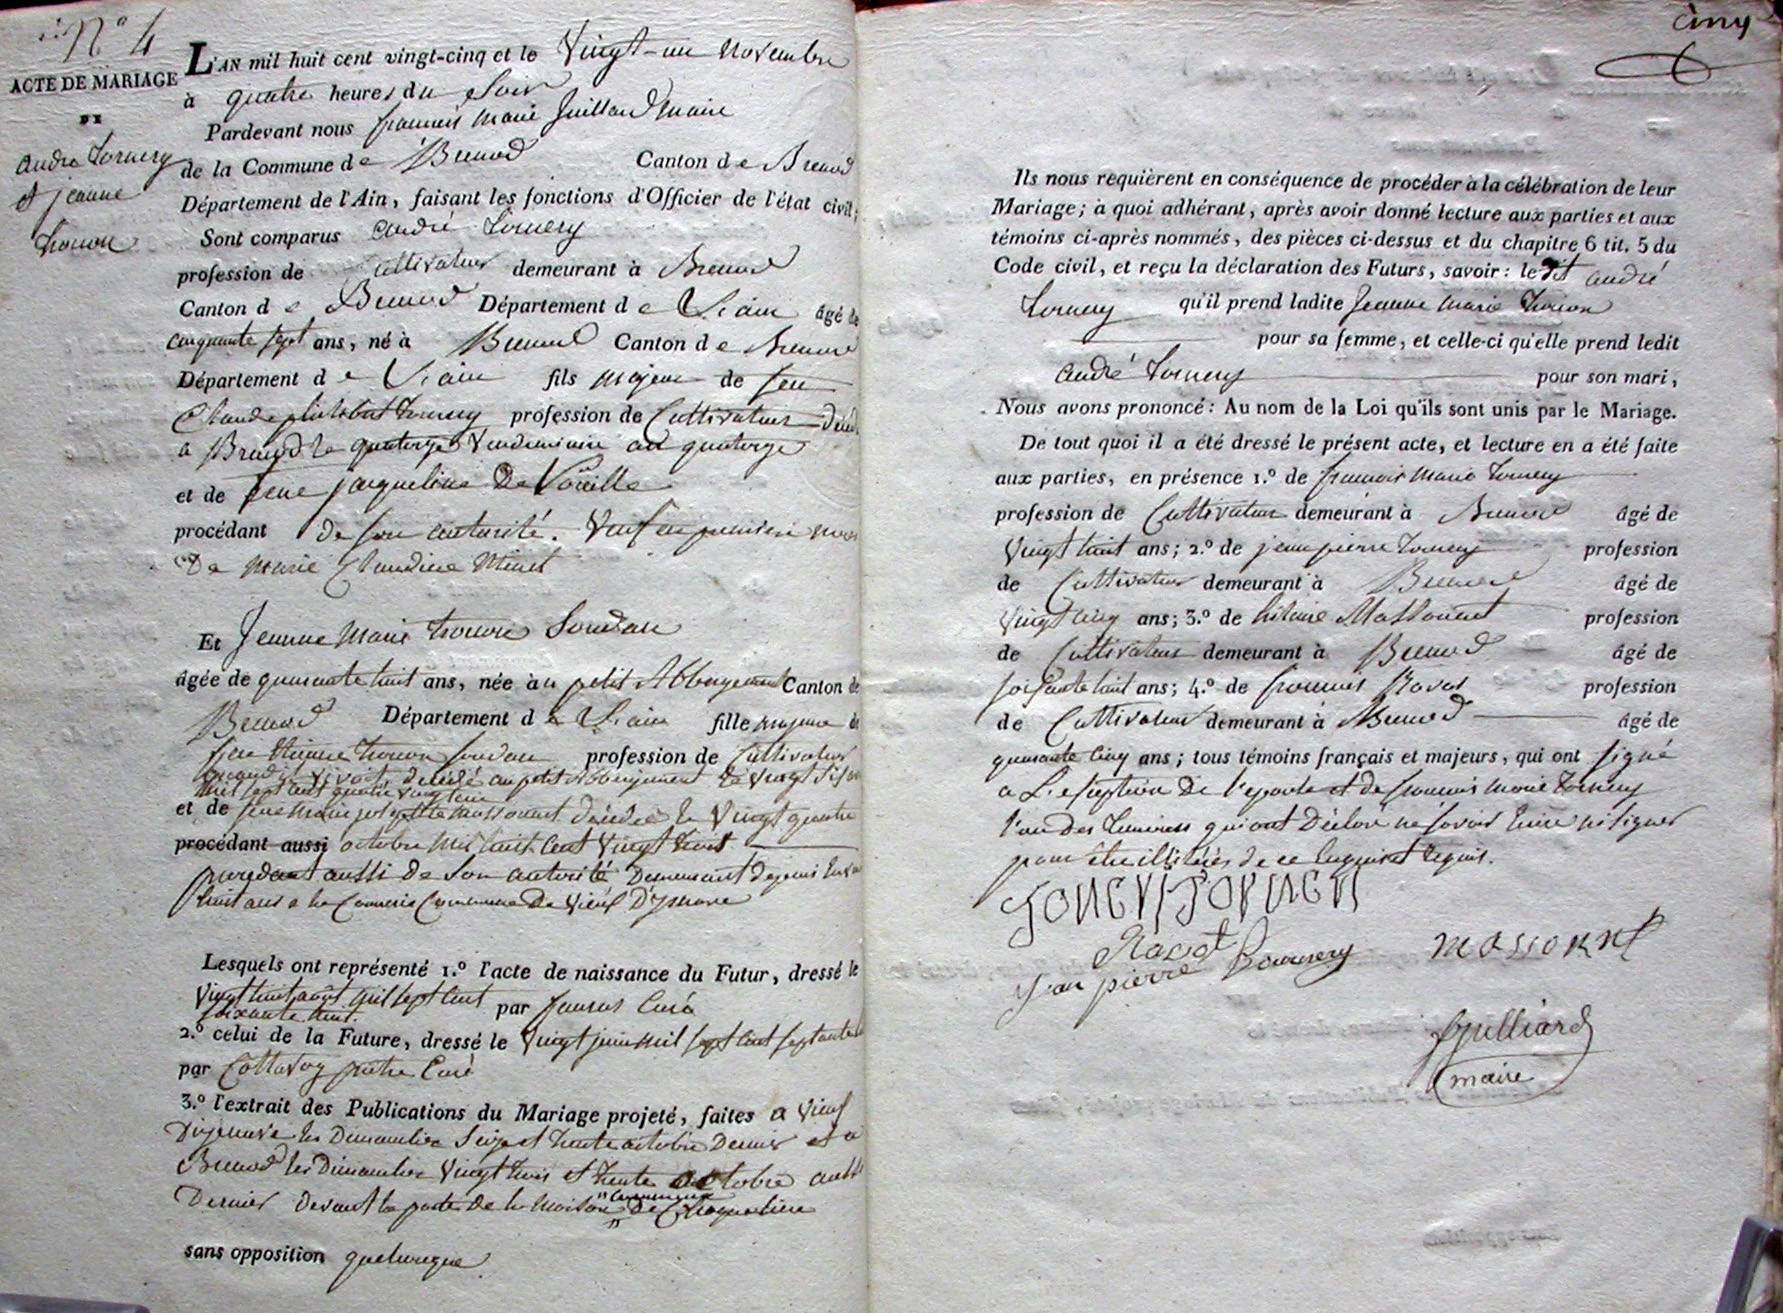 N° 4
ACTE DE MARIAGE
DE
andré Tornery
et jeanne
Thonon
L'AN mil huit cent vingt-cinq et le Vingt-un Novembre
à quatre heures du Soir
Pardevant nous françois Marie Juillard Maire
de la Commune de Brenod Canton de Brenod
Département de l'Ain, faisant les fonctions d'Officier de l'état civil;
Sont comparus andré Tornery
profession de Cultivateur demeurant à Brenod
Canton de Brenod Département de L'ain âgé de
cinquante sept ans, né à Brenod Canton de Brenod
Département de L'ain fils majeur de feu
Claude philibert Tornery profession de Cultivateur
à Brenod le quatorze Vendemiaire an quatorze
et de feue jacqueline
procédant de son autorité. Veuf en premiere noces
De Marie Claudine Minet
Et Jeanne Marie Thonon Soudan
âgée de quarante huit ans, née au petit Abbergement Canton de
Brenod Département de L'ain fille majeure de
feu Thonon Soudan profession de Cultivateur
quand il vivoit, décédé au petit Abbergement le vingt six
mil sept cent quatre vingt
et de feue Marie Massonnet décédée le Vingt quatre
procédant aussi octobre mil huit cent vingt trois
procedant aussi de son autorité Demeurant depuis
huit ans a la Commune De Vieux D'Izenave
Lesquels ont représenté 1.º l'acte de naissance du Futur, dressé le
Vingt huit août mil sept cent
soixante huit. par Curé
2.º celui de la Future, dressé le Vingt juin mil sept cent septante
par Cottavoz prêtre Curé
3.º l'extrait des Publications du Mariage projeté, faites a Vieux
Dizenave les Dimanches Seize et trente octobre Dernier et a
Brenod les Dimanches Vingt trois et trente octobre aussi
Dernier Devant la porte de la Maison
Commune
sans opposition quelconque
cinq
Ils nous requièrent en conséquence de procéder à la célébration de leur
Mariage; à quoi adhérant, après avoir donné lecture aux parties et aux
témoins ci-après nommés, des pièces ci-dessus et du chapitre 6 tit. 5 du
Code civil, et reçu la déclaration des Futurs, savoir: ledit andré
Tornery qu'il prend ladite Jeanne Marie Thonon
pour sa femme, et celle-ci qu'elle prend ledit
andré Tornery pour son mari,
Nous avons prononcé: Au nom de la Loi qu'ils sont unis par le Mariage.
De tout quoi il a été dressé le présent acte, et lecture en a été faite
aux parties, en présence 1.º de françois Marie Tornery
profession de Cultivateur demeurant à Brenod âgé de
Vingt huit ans; 2.º de jean pierre Tornery profession
de Cultivateur demeurant à Brenod âgé de
Vingt cinq ans; 3.º de hilaire Massonnet profession
de Cultivateur demeurant à Brenod âgé de
soixante huit ans; 4.º de françois Ravot profession
de Cultivateur demeurant à Brenod âgé de
quarante cinq ans; tous témoins français et majeurs, qui ont signé
a L'exception De l'epouse et de françois Marie Tornery
l'un des temoins qui ont Déclaré ne savoir Ecrire ni signer
pour être illitérés de ce Enquis et Requis.
Ravot
jan pierre Tournery massonnet
Juilliard
maire